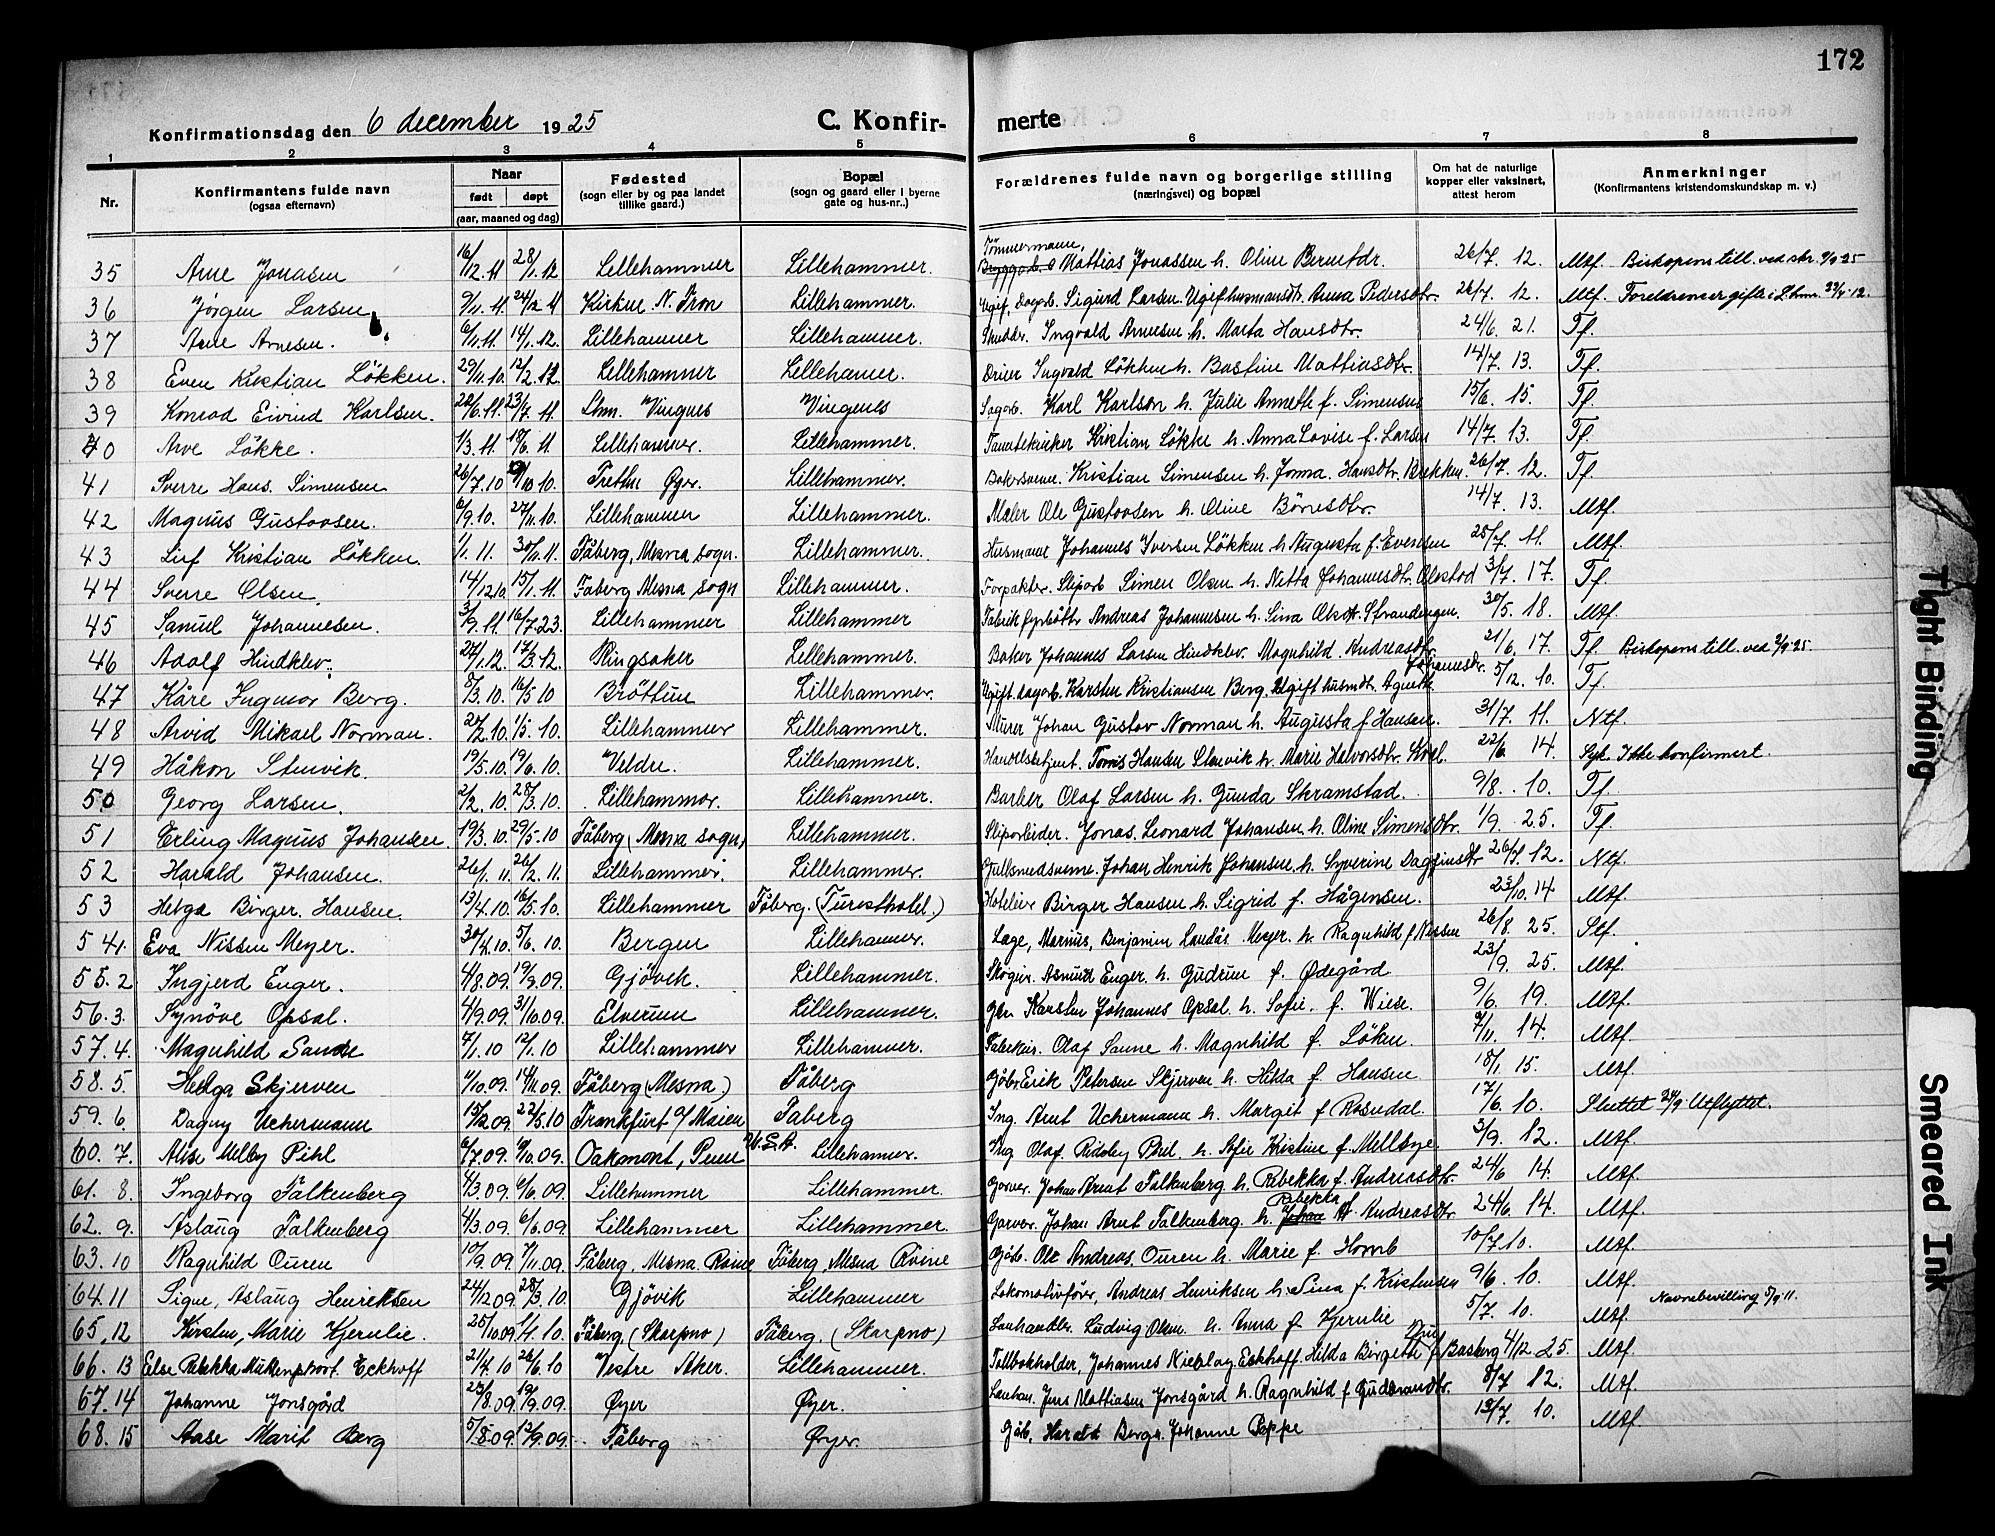 172
Konfirmationsdag den 6 december 1925
C. Konfir- merte
1 2 3 4 5 6 7 8
Nr. | Konfirmantens fulde navn (ogsaa efternavn) | Naar født døpt (aar, maaned og dag) | Fødested (sogn eller by og paa landet tillike gaard.) | Bopæl (sogn og gaard eller i byerne gate og hus-nr.) | Forældrenes fulde navn og borgerlige stilling (næringsvei) og bopæl | Om hat de naturlige kopper eller vaksinert, attest herom | Anmerkninger (Konfirmantens kristendomskundskap m. v.)
35 Arne Jonasen 16/12.11 28/1.12 Lillehammer Lillehammer. Tømmermann, Mattias Jonassen h. Oline Berntdr. 26/7. 12. Mtf. Biskopens till. ved skr. 9/9 25
36 Jörgen Larsen 9/11.11. 24/12 11 Kirkne N. Fron Lillehammer. Ugif. Dagarb. Sigurd Larsen Ugif husmansdtr. Anna Pedersdtr. 26/7. 12. Mtf. Foreldrene er gifte i Lhmr.
37 Arne Arnesen. 6/11.11. 14/1.12. Lillehammer Lillehammer. Ingvald Arnesen h. Marta Hansdtr. 24/6. 21. Tf.
38 Even Kristian Lökken. 29/11.10. 12/2. Lillehammer Lillehammer. Ingvald Lökken h. Bastine Mattiasdtr. 14/7. 13. Tf.
39 Konrad Eivind Karlsen. 23/7.11. Lhm. Vingnes Vingnes Sagarb. Karl Karlson h. Julie Annette f. Simensen 15/6. 15. Tf.
40 Arve Lökke. 1/3.11. 18/6.11. Lillehammer. Lillehammer. Kristian Lökke h. Anna Lovise f. Larsen 14/7. 13. Tf.
41 Sverre Hans. Simensen 26/7.10 10. Tretten Øyer. Lillehammer. Bakersvenn. Kristian Simensen h. Jonna Hansdtr. Brekken. 26/7. 12. Tf.
42 Magnus Gustavsen. 6/9.10. 27/11.10. Lillehammer Lillehammer. Maler Ole Gustavsen h. Oline Börresdtr. 14/7. 13. Mtf.
43 Leif Kristian Lökken. 1/1.11. Fåberg, Mesna sogn. Lillehammer. Husmann Johannes Iversen Lökken h. Augusta f. Evensen 25/7. 11. Mtf.
44 Sverre Olsen. 14/12 10 15/1.11. Faberg Mesna sogn Lillehammer. Forpakter. Sliparb Simen Olsen h. Netta Johannesdtr. 3/7. 17. Tf.
45 Samuel Johannesen. 3/9.11. 16/7.23. Lillehammer Lillehammer Andreas Johannesen h. Sina Olsdtr. Strandengen. 30/5. 18. Mtf.
46 Adolf Hindklev. 24/1.12. 17/3.12. Ringsaker Lillehammer. Baker Johannes Larsen Hindklev. Magnhild. Andreasdtr. 21/6. 17. Tf. Biskopens till. ved 2/9 25.
47 Kåre Ingmar Berg. 8/3.10. 16/5 10 Bröttum Lillehammer. Ugift. dagarb. Karsten Kristiansen Berg. Ugift husmdtr Agnette Johannesdtr. 5/12. 10. Tf.
48 Arvid Mikael Norman. 1/5.10. Lillehammer Lillehammer. Murer Johan Gustav Norman h. Augusta f Hansen. 31/7. 11. Ntf.
49 Håkon Stenvik. 19/5.10. 19/6.10. Veldre. Lillehammer. Handelsbetjent. Hansen Stenvik h. Marie Halvorsdtr. 22/6 14. Syk. Ikke konfirmert.
50 Georg Larsen. 2/2.10. 28/3.10. Lillehammer. Lillehammer. Barber Olaf Larsen h. Gunda Skramstad. 9/8. 10. Tf.
51 Erling Magnus Johansen. 19/3.10. 29/5.10 Fåberg (Mesna sogn) Lillehammer. Sliparbeider. Jonas. Leonard Johansen h. Oline Simensdtr. 1/9. 25. Tf.
52 Harald Johansen. 26/1.11. 26/2.11. Lillehammer. Lillehammer. Gullsmedsvenn. Johan Henrik Johansen h. Syverine Dagfinsdtr 26/7. 12. Ntf.
53 Helga Birger. Hansen. 13/4.10. 16/5.10. Lillehammer Fåberg. (Turisthotel.) Hoteleier Birger Hansen h. Sigrid f. Hågensen. 23/10.14 Mtf.
54 1. Eva Nissen Meyer. 30/4.10. 5/6.10. Bergen Lillehammer. Læge, Marius, Benjamin Landås Meyer. h. Ragnhild f Nissen 26/8. 25. Stf.
55. 2 Ingjerd Enger. 4/8.09. 19/9.09. Gjövik. Lillehammer. Asmund Enger h. Gudrun f. Ødegård 23/9. 25. Mtf.
56. 3. Synöve Opsal. 4/9.09. 31/10.09. Elverum Lillehammer. Karsten Johannes Opsal h. Sofie. f. Wiese. 9/6. 19. Mtf.
57. 4. Magnhild Sanne 4/1.10 12/1.10 Lillehammer Lillehammer. Fabrikeier. Olaf Sanne h. Magnhild f. Löken. 9/11. 14. Mtf.
58. 5. Helga Skjerven 11/10.09. 14/11.09. Fåberg (Mesna) Fåberg Gbr. Erik Petersen Skjerven h. Hilda f. Hansen 18/1. 15. Mtf.
59. 6. Dagny Uchermann 15/12 09. 22/5.10 Frankfurt a/ Maien Faberg Ing. Arnt Uchermann h. Margit f Rosendal. 17/6. 10. Sluttet 24/9 Utflyttet.
60. 7. Alise Melby Pihl 6/7.09. 09. Oakmont, Penn U.S.A. Lillehammer. Ing Olaf Pihl. h. Sofie Kristine f. Mellbye 3/9. 12. Mtf.
61. 8. Ingeborg Falkenberg 4/3.09. 6/6.09. Lillehammer Lillehammer. Garver. Johan Arnt Falkenberg h. Rebekka f. Andreasdtr. 24/6 14. Mtf.
62. 9. Aslaug Falkenberg 4/3.09. 6/6.09. Lillehammer Lillehammer Garver. Johan Arnt Falkenberg. h. Rebekka Andreasdtr 24/6 14. Mtf.
63. 10 Ragnhild Ouren 10/9.09 7/11.09. Fåberg, Mesna. Roine Fåberg, Mesna Roine Gbr. Ole Andreas. Ouren h. Marie f. Homb 10/7 10. Mtf.
64. 11 Signe, Aslaug Henriksen 24/12 09. 28/3.10. Gjövik Lillehammer Lokomotivförer, Andreas Henriksen h. Lina f. Kristensen 9/6. 10. Mtf.
65. 12 Kirsten, Marie Kjernlie. 25/10 09 10. Fåberg (Skarpno) Fåberg. (Skarpno) Lanhandler. Ludvig Olsen h. Anna f Kjernlie 5/7. 10. Mtf. Navnebevilling 5/9 11.
66. 13 Else Rebekka Eckhoff 21/4 10 26/6 10 Vestre Aker. Lillehammer. Tollbokholder, Johannes Eckhoff. Hilda Birgette f Basberg 4/12 25. Mtf.
67. 14 Johanne Jonsgård 8.09. 19/9.09. Øyer Øyer. Lanhan. Jens Mattiasen Jonsgård h. Ragnhild f Gudbrandsdtr. 8/7 12. Mtf.
68. 15 Aase Marit Berg 5/8 09. 12/9.09. Fåberg Øyer. Gbr. Harald Berg h. Johanne Peppe 13/7. 10. Mtf.
Tight Binding
Smeared Ink